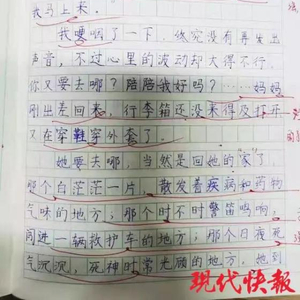 我马上来。
我哽咽了一下,终究没有再发出
声音,不过心里的波动却大得不行,
你又要去哪?陪陪我好吗?……妈妈
刚出差回来,行李箱还没来得及打开
又在穿鞋穿外套了。
她要去哪,当然是回她的“家”了,
那个白茫茫一片,散发着疾病和药物
气味的地方,那个时不时警笛鸣响,
闯进一辆救护车的地方,那个日夜死
气沉沉,死神时常光顾的地方。她到
现代快报